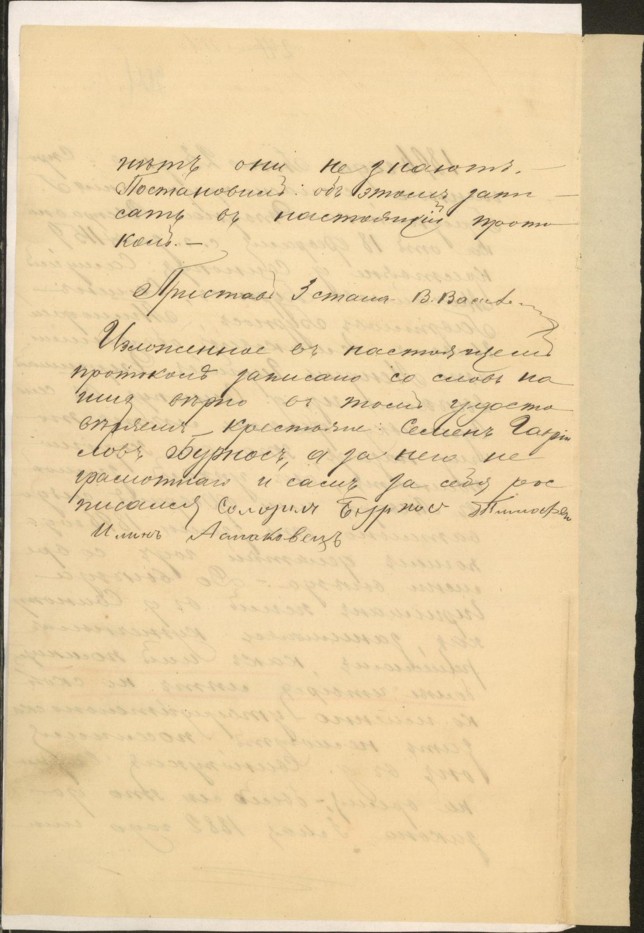 нѣтъ они не знаютъ. —
Постановилъ: объ этомъ запи-
сать въ настоящій прото
колъ. —
Приставъ 3 стана В.
Изложенное въ настоящемъ
протоколѣ записано со словъ на
шихъ вѣрно въ томъ удосто
вѣряемъ крестьяне: Семенъ Гаври
ловъ Бурносъ, а за него не
грамотнаго и самъ за себя рос
писался Бурносъ Тимофей
Илинъ